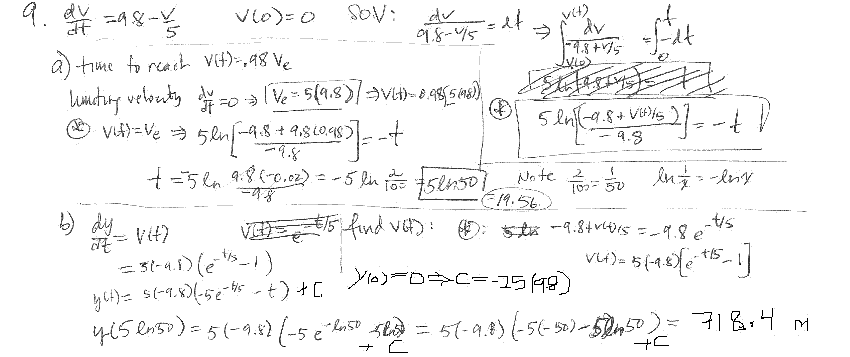 9. dv/dt = 9.8 - v/5 v(0) = 0 SOV: dv/(9.8-v/5) = dt ⇒ ∫_{v(0)}^{v(t)} dv/(-9.8+v/5) = ∫_0^t -dt
a) time to reach v(t) = .98 Ve
limiting velocity dv/dt = 0 ⇒ Ve = 5(9.8) ⇒ v(t) = 0.98(5(9.8))
(*) 5 ln[(-9.8 + v(t)/5)/(-9.8)] = -t
(*) v(t) = Ve ⇒ 5 ln[(-9.8 + 9.8(0.98))/(-9.8)] = -t
t = -5 ln 9.8(-0.02)/(-9.8) = -5 ln 2/100 = 5 ln 50 = 19.56
Note 2/100 = 1/50 ln 1/x = -ln x
b) dy/dt = v(t) find v(t): (*): -9.8+v(t)/5 = -9.8 e^{-t/5}
= 5(-9.8)(e^{-t/5} - 1) v(t) = 5(-9.8)[e^{-t/5} - 1]
y(t) = 5(-9.8)(-5e^{-t/5} - t) + C y(0) = 0 ⇒ C = -25(9.8)
y(5 ln 50) = 5(-9.8)(-5 e^{-ln 50} - 5 ln 50) + C = 5(-9.8)(-5(-50) - 5 ln 50) + C = 718.4 M